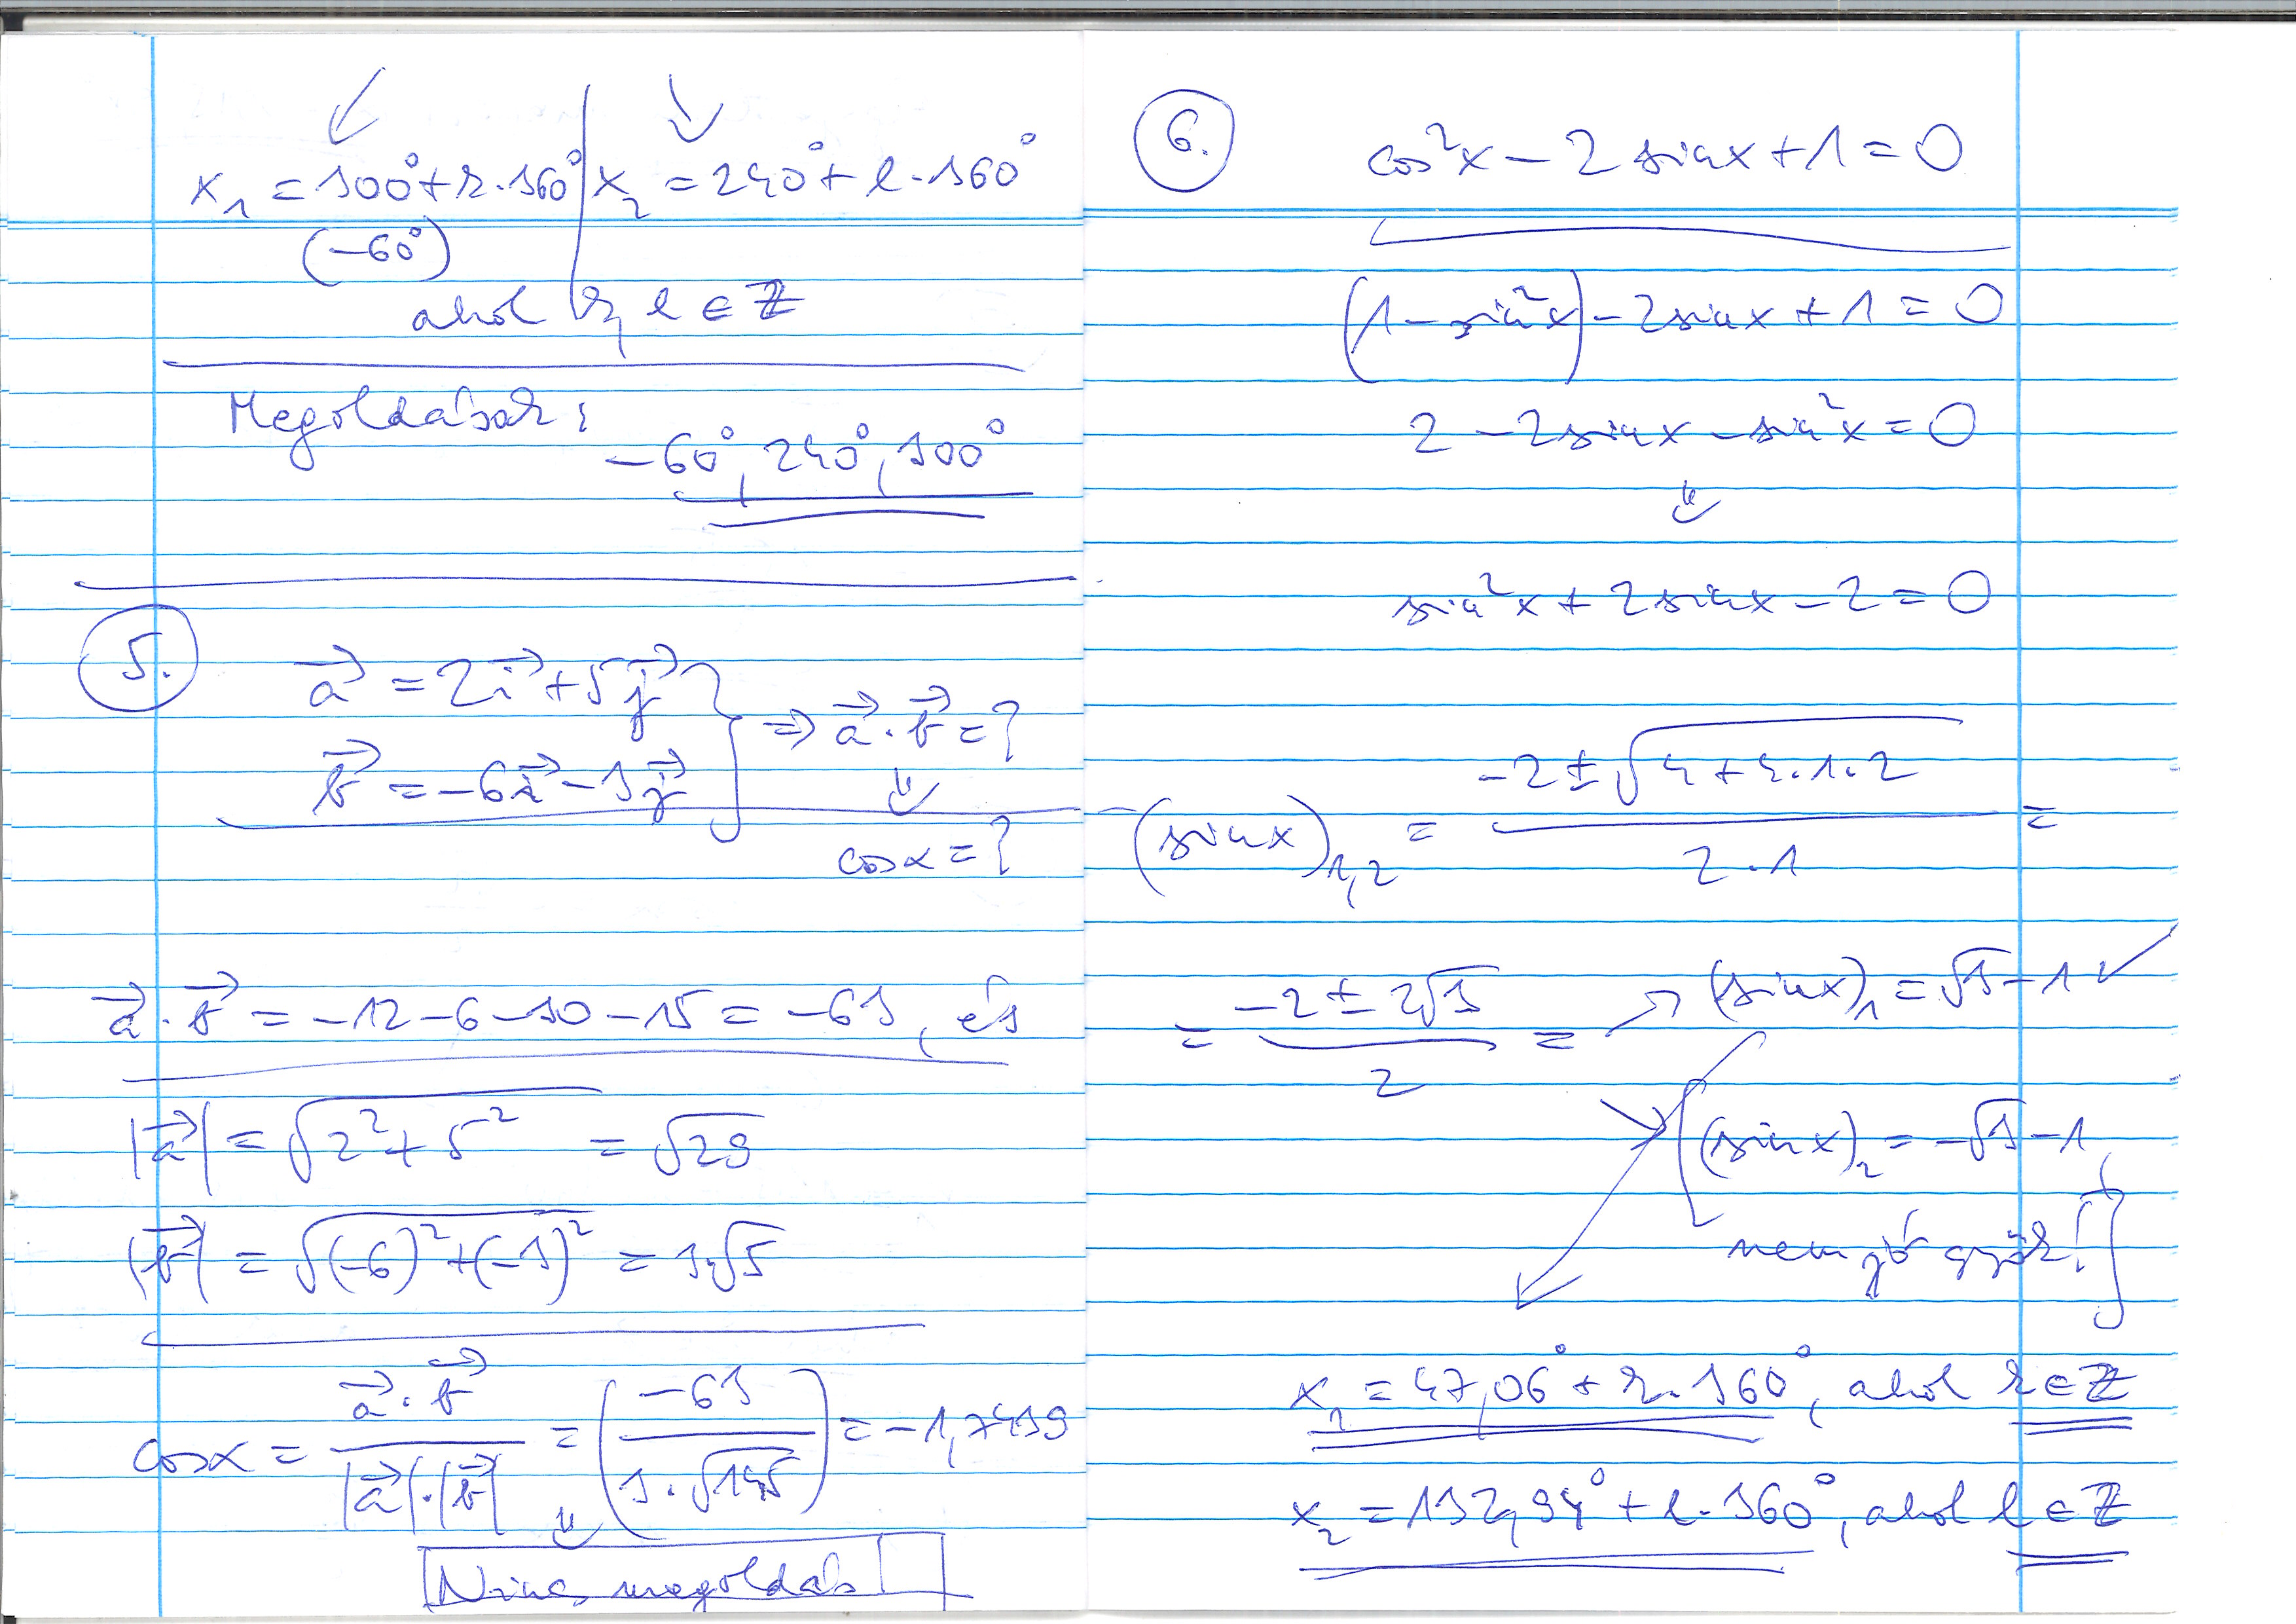 x₁ = 300° + k·360° | x₂ = 240° + l·360°
(-60°)
ahol k, l ∈ ℤ
Megoldások:
-60°, 240°, 300°
5.
a⃗ = 2i⃗ + 5j⃗
b⃗ = -6i⃗ - 3j⃗ } ⇒ a⃗·b⃗ = ?
⇓
cosα = ?
a⃗·b⃗ = -12 - 6 - 30 - 15 = -63, és
|a⃗| = √(2² + 5²) = √29
|b⃗| = √((-6)² + (-3)²) = 3√5
cosα = (a⃗·b⃗)/(|a⃗|·|b⃗|) = (-63/(3·√145)) = -1,7439
⇓
Nincs megoldás!
6.
cos²x - 2 sinx + 1 = 0
(1 - sin²x) - 2sinx + 1 = 0
2 - 2sinx - sin²x = 0
⇓
sin²x + 2sinx - 2 = 0
(sinx)₁,₂ = (-2 ± √(4 + 4·1·2))/(2·1) =
= (-2 ± 2√3)/2 = ↗ (sinx)₁ = √3 - 1 ✓
↘ [(sinx)₂ = -√3 - 1,
nem jó gyök!]
x₁ = 47,06° + k·360°, ahol k ∈ ℤ
x₂ = 132,94° + l·360°, ahol l ∈ ℤ